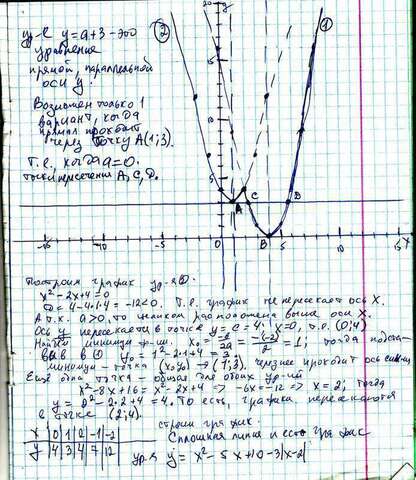 ур-е y = a+3 - это
уравнение
прямой, параллельной
оси y.
Возможен только 1
вариант, когда
прямая проходит
через точку A(1;3).
Т.е., когда a=0.
точки пересечения A, C, D.
② 20 y ①
15
10
5
A C B
-15 -10 -5 5 10 15 X
Построим график ур-я ②.
x² - 2x + 4 = 0
D = 4 - 4·1·4 = -12 < 0. Т.е. график не пересекает ось X.
А т.к. a > 0, то целиком расположена выше оси X.
Ось y пересекается в точке y = c = 4. x=0, т.е. (0;4)
Найдём минимум ф-ии. x₀ = -b/2a = -(-2)/2 = 1; тогда подста-
вив в ② y₀ = 1² - 2·1 + 4 = 3.
минимум - точка (x₀y₀) → (1;3), через проходит ось
Ещё одна точка - общая для обоих ур-ий
x² - 8x + 16 = x² - 2x + 4 => -6x = -12 => x = 2; тогда
y = 2² - 2·2 + 4 = 4. То есть, графики пересекаются
в точке (2;4).
строим график.
x | 0 | 1 | 2 | -1 | -2
y | 4 | 3 | 4 | 7 | 12
Сплошная линия и есть график
ур-я y = x² - 5x + 10 - 3|x-2|